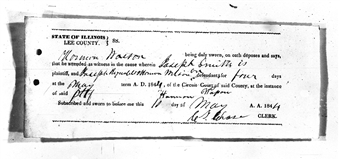 STATE OF ILLINOIS
LEE COUNTY. } ss.
Harmon Wasson being duly sworn, on oath deposes and says,
that he attended as witness in the cause wherein Joseph Smith is
plaintiff, and Joseph Reynolds & Harmon Wilson defendants for four days
at the May term A. D. 1844, of the Circuit Court of said County, at the instance
of said Pltff Harmon Wasson
Subscribed and sworn to before me this 10 day of May A. D. 1844
Chase CLERK.